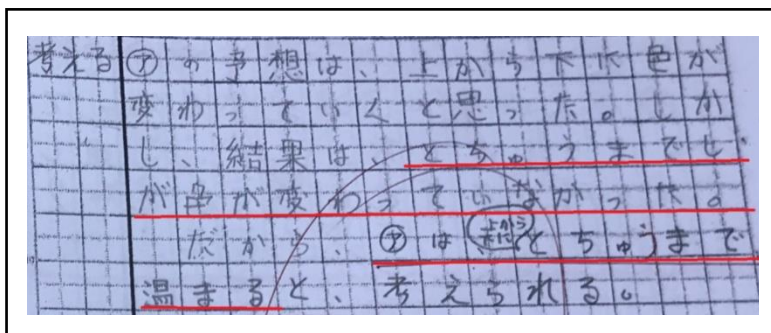 考える ㋐の予想は、上から下に色が
変わっていくと思った。しか
し、結果は、とちゅうまでし
か色が変わっていなかった。
だから、㋐は、上からとちゅうまで
温まると、考えられる。